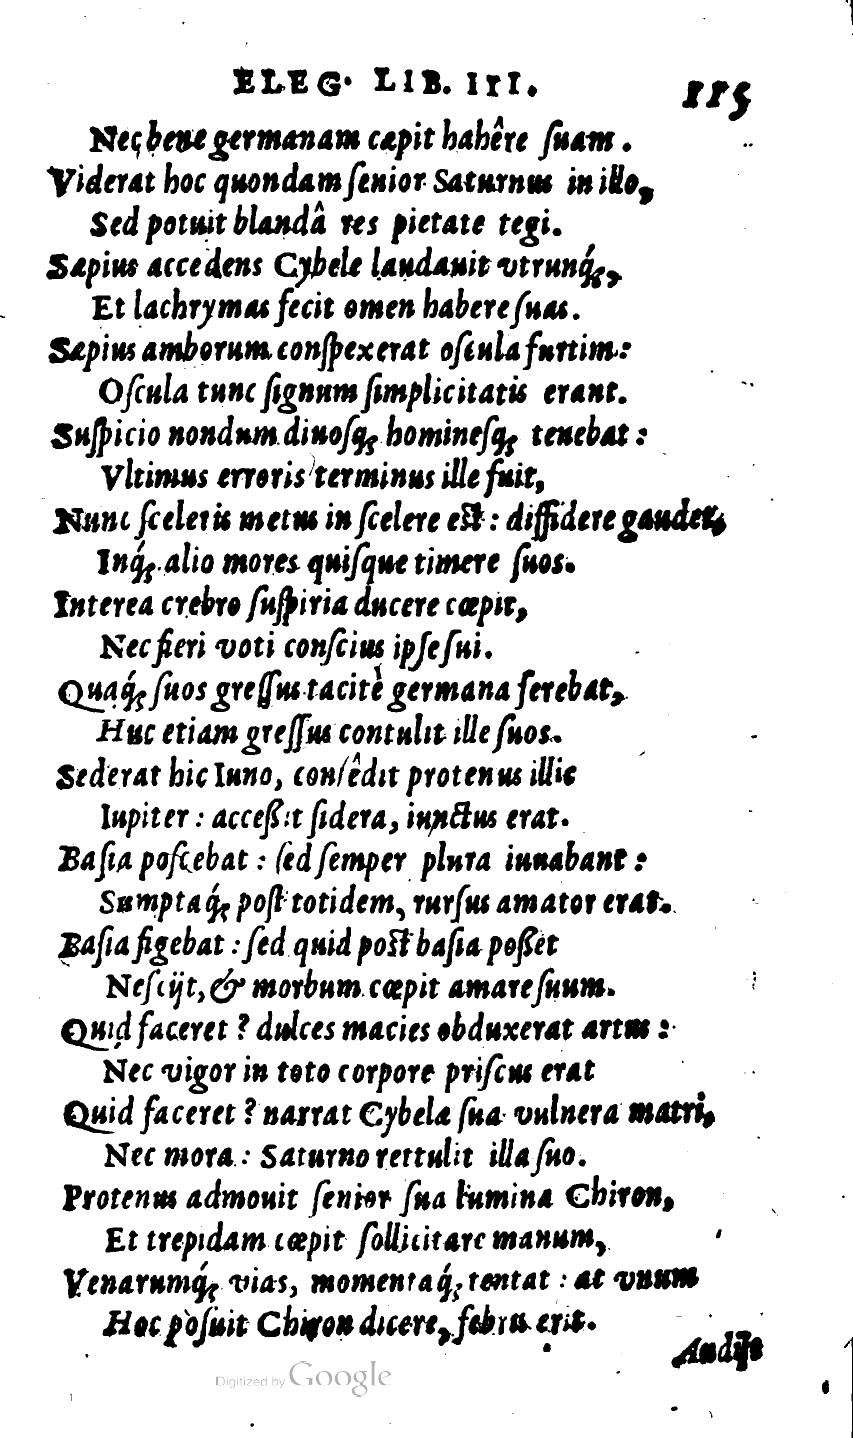 ELEG. LIB. III. 115
Neq; bene germanam cæpit habêre ſuam.
Viderat hoc quondam ſenior Saturnus in illo,
Sed potuit blandâ res pietate tegi.
Sæpius accedens Cybele laudauit vtrunq́;,
Et lachrymas fecit omen habere ſuas.
Sæpius amborum conſpexerat oſcula furtim:
Oſcula tunc ſignum ſimplicitatis erant.
Suſpicio nondum diuoſq; homineſq; tenebat:
Vltimus erroris terminus ille fuit,
Nunc ſceleris metus in ſcelere eſt: diffidere gaudet,
Inq́; alio mores quiſque timere ſuos.
Interea crebro ſuſpiria ducere cœpit,
Nec fieri voti conſcius ipſe ſui.
Quaq́; ſuos greſſus tacitè germana ferebat,
Huc etiam greſſus contulit ille ſuos.
Sederat hic Iuno, conſêdit protenus illic
Iupiter: acceßit ſidera, iunctus erat.
Baſia poſcebat: ſed ſemper plura iuuabant:
Sumptaq́; poſt totidem, rurſus amator erat.
Baſia figebat: ſed quid poſt baſia poßet
Neſcijt, & morbum cœpit amare ſuum.
Quid faceret? dulces macies obduxerat artus:
Nec vigor in toto corpore priſcus erat
Quid faceret? narrat Cybelæ ſua vulnera matri,
Nec mora: Saturno rettulit illa ſuo.
Protenus admouit ſenior ſua lumina Chiron,
Et trepidam cœpit ſollicitare manum,
Venarumq́; vias, momentaq́; tentat: at vnum
Hoc poſuit Chiron dicere, febris erit.
Audijt
Digitized by Google